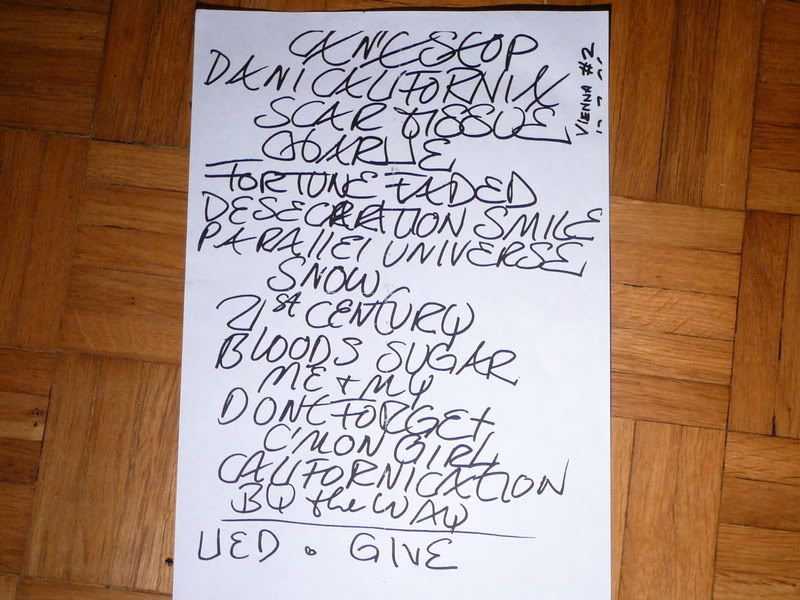 CAN'T STOP
DANI CALIFORNIA
SCAR TISSUE
CHARLIE
FORTUNE FADED
DESECRATION SMILE
PARALLEL UNIVERSE
SNOW
21st CENTURY
BLOODS SUGAR
ME + MY
DONT FORGET
C'MON GIRL
CALIFORNICATION
BY the WAY
UED . GIVE
VIENNA #2